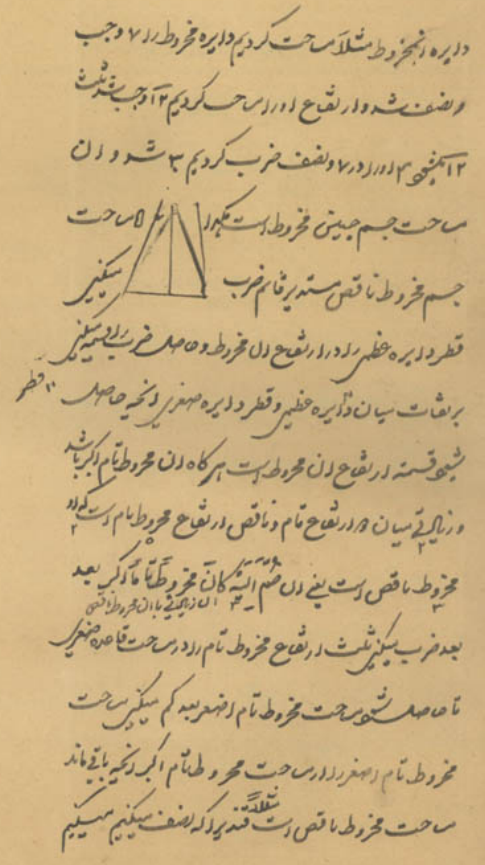 دایره مخروط مثلا مساحت کردیم دایره مخروط را ۷ وجب
و نصف شد و ارتفاع او را مساحت کردیم ۱۲ وجب شد ثلث
۱۲ میشود ۴ او را در ۷ و نصف ضرب کردیم ۳۰ شد و آن
مساحت جسم چنین مخروط است مساحت
جسم مخروط ناقص مستدیر قائم ضرب میکنی
قطر دایره عظمی را در ارتفاع آن مخروط و حاصل ضرب را قسمت میکنی
بر تفاوت میان قطر دایره عظمی و قطر دایره صغری آنچه حاصل
میشود قسمت ارتفاع آن مخروط است هر گاه آن مخروط تام اگر باشد
و زیادتی میان ارتفاع تام و ناقص ارتفاع مخروط تام است که او
مخروط ناقص است یعنی ان ضم الیه کان مخروطا تاما اگر بعد
آن زیادتی با آن مخروط ناقص
بعد ضرب میکنی ثلث ارتفاع مخروط تام را در مساحت قاعده صغری
تا حاصل شود مساحت مخروط تام اصغر بعد کم میکنی مساحت
مخروط تام اصغر را از مساحت مخروط تام اکبر آنچه باقی ماند
مساحت مخروط ناقص است مثلا